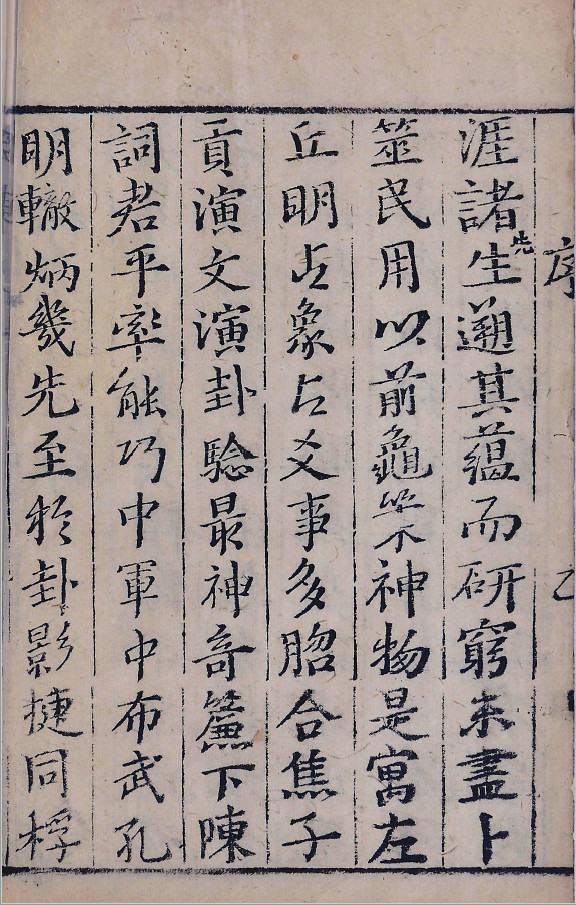 序 乙
涯諸先生遡其蘊而研窮未盡卜
筮民用以前龜策神物是寓左
丘明占象占爻事多脗合焦子
貢演文演卦騐最神奇簾下陳
詞君平率能巧中軍中布武孔
明轍炳幾先至於卦影捷同桴